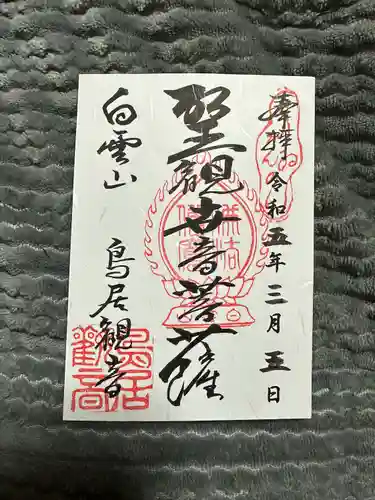 奉拝 令和五年三月五日
聖観世音菩薩
白雲山 鳥居観音
鳥居
観音